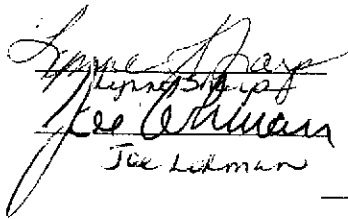 Lynne Sharp
Lynne Sharp
Joe Lehman
Joe Lehman